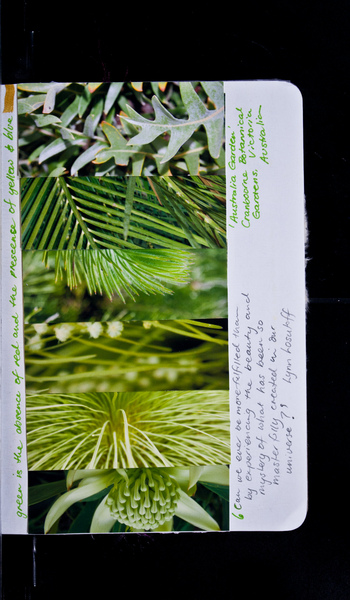 green is the absence of red and the presence of yellow & blue
'Australia Garden'
Cranbourne Botanical
Gardens, Victoria
Australia
" Can we ever be more fulfilled than
by experiencing the beauty and
mystery of what has been so
masterfully created in our
universe"? Lynn